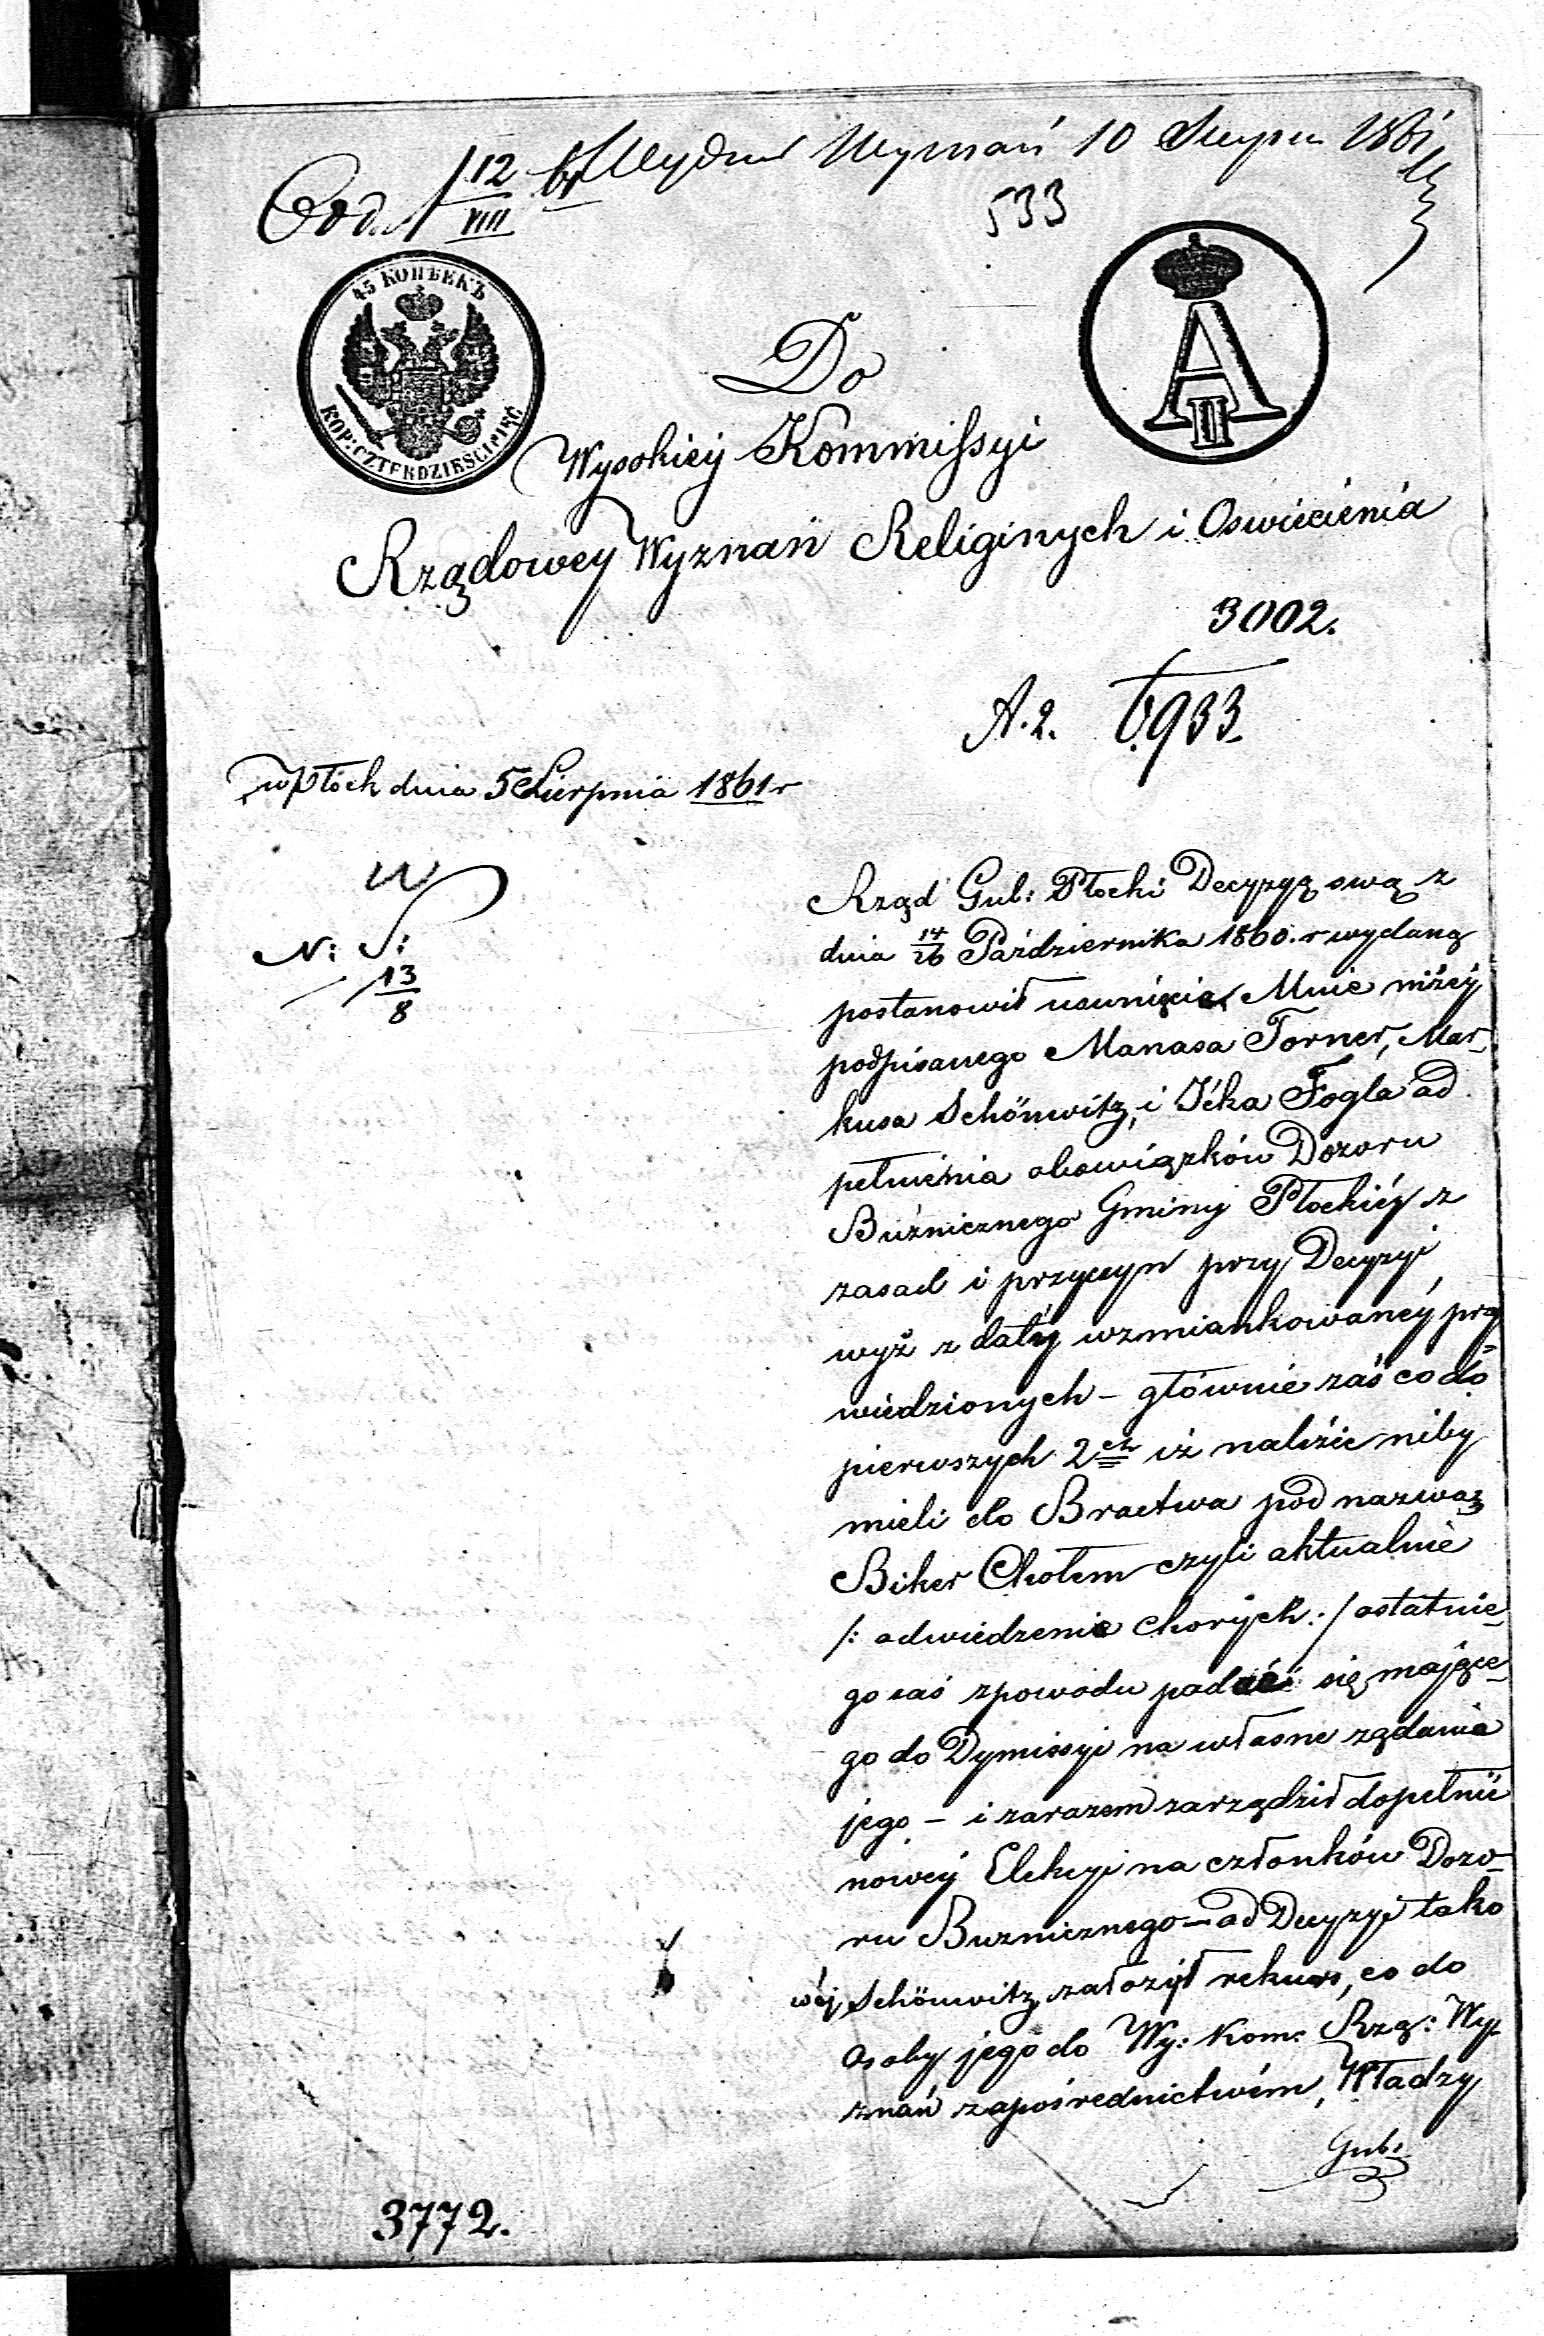 Wydział Wyznań 10 Sierpn 1861
Od. 12
VIII
533
45 КОПѢЕКЪ
KOP: CZTERDZIEŚCI PIĘĆ
A
II
Do
Wysokiey Kommissyi
Rządowey Wyznań Religinych i Oswiecienia
3002.
A. 2. 6933
w Płock dnia 5 Sierpnia 1861 r
N: S:
13
8
Rząd Gub: Płocki Decyzyą swą z
dnia 14/26 Października 1860. r wydaną
postanowił usunięcie Mnie niżéy
podpisanego Manasa Torner, Mar-
kusa Schönwitz, i Icka Fogla od
pełnienia obowiązków Dozoru
Bużnicznego Gminy Płockiéy z
zasad i przyczyn przy Decyzyi
wyż z daty wzmiankowanéy przy
wiedzionych – głównie zaś co do
pierwszych 2ch iż należie niby
mieli do Bractwa pod nazwą
Biker Cholem czyli aktualnie
/: odwiedzenie chorych :/ ostatnie-
go zaś z powodu podać się mające-
go do Dymissyi na własne rządania
jego – i zarazem zarządził dopełnić
nowéy Elekcyi na członków Dozo-
ru Buznicznego – od Decyzyi tako
wéj Schönwitz założył rekurs, co do
Osoby jego do Wy: Kom: Rzą: Wy-
znań zapośrednictwém, Władzy
Gub:
3772.